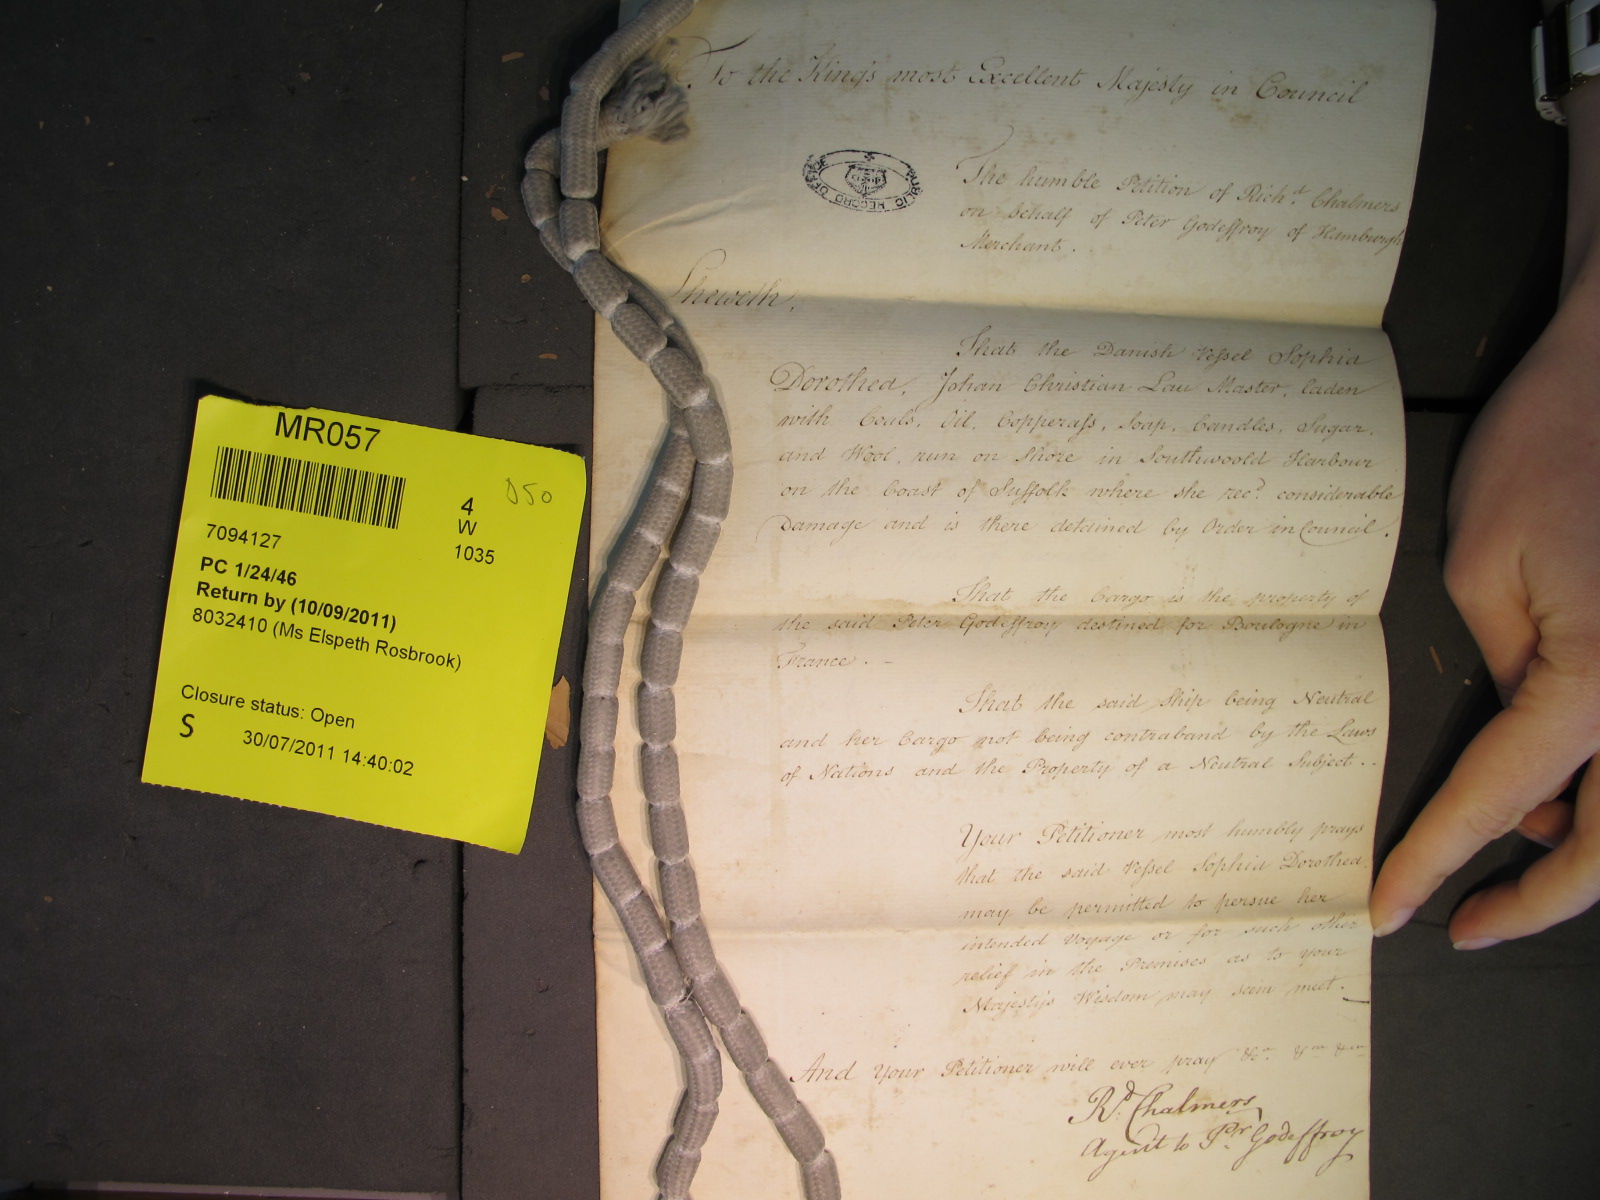 To the King's most Excellent Majesty in Council
PUBLIC RECORD OFFICE
The humble Petition of Rich.d Chalmers
on behalf of Peter Godeffroy of Hamburgh
Merchant.
Sheweth,
That the Danish Vessel Sophia
Dorothea, Johan Christian Lau Master, laden
with Coals, Oil, Copperass, Soap, Candles, Sugar,
and Wool, run on Shore in Southwoold Harbour
on the Coast of Suffolk where she rec.d considerable
Damage and is there detained by Order in Council.
That the Cargo is the property of
the said Peter Godeffroy destined for Boulogne in
France. -
That the said Ship being Neutral
and her Cargo not being contraband by the Laws
of Nations and the Property of a Neutral Subject..
Your Petitioner most humbly prays
that the said Vessel Sophia Dorothea
may be permitted to persue her
intended Voyage or for such other
relief in the Premises as to your
Majesty's Wisdom may seem meet.
And Your Petitioner will ever pray &c.a &ca &ca
R.d Chalmers
Agent to P.r Godeffroy
MR057
D50
4
W
1035
7094127
PC 1/24/46
Return by (10/09/2011)
8032410 (Ms Elspeth Rosbrook)
Closure status: Open
S
30/07/2011 14:40:02